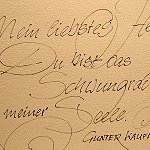 Mein liebstes
Du bist das
Schwungra
meiner Seele.
GUNTER KAUF